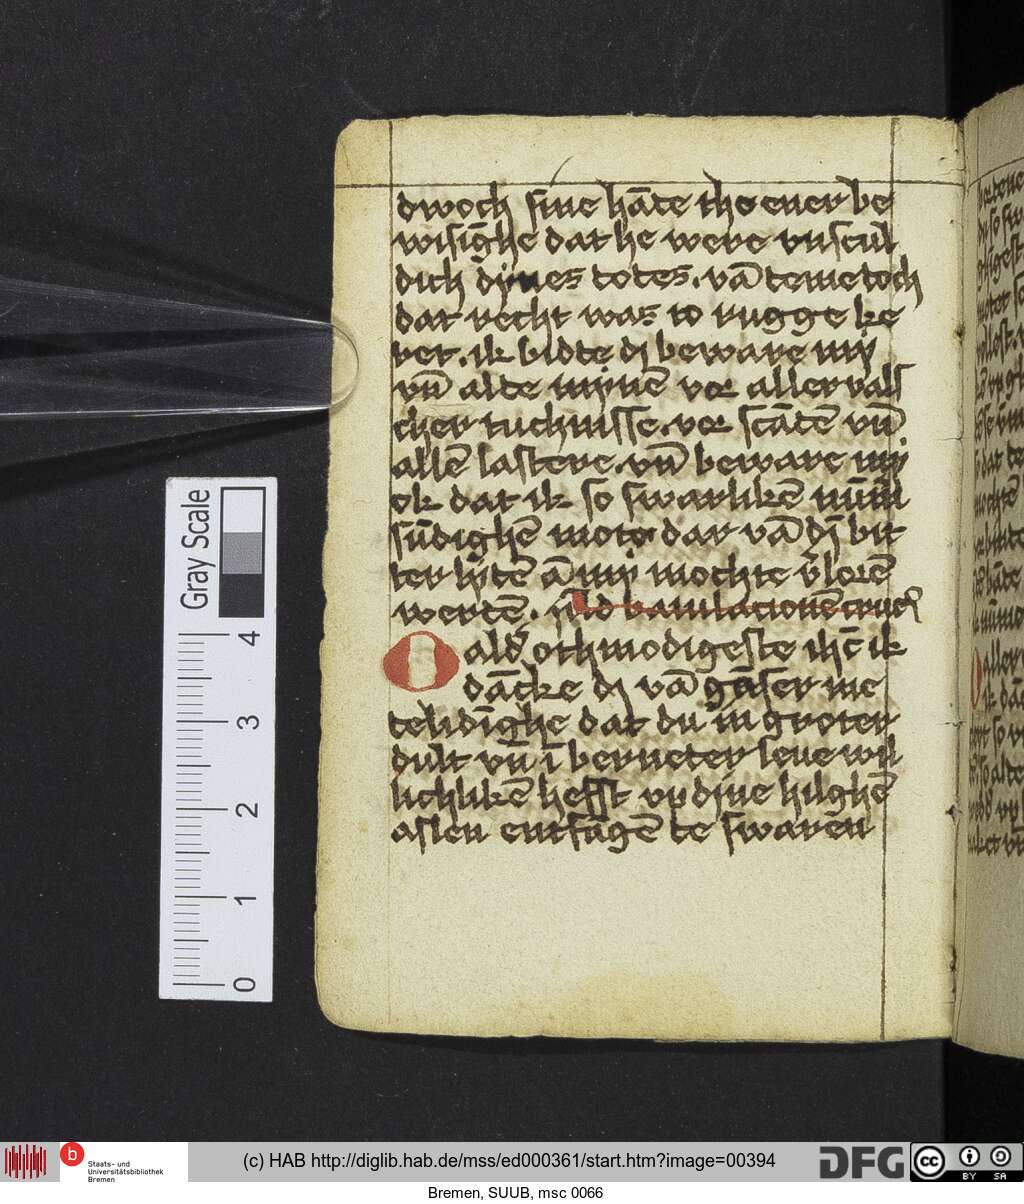 dwoch sine hāte tho ener be
wisīghe dat he were vnscul
dich dynes dodes. vā deme doch
dat recht was to rugge ke
ret. ik bidde dj beware my
vn̄ alde mynē vor aller vals
cher tuchnisse. vor scādē vn̄
allē lastere. vn̄ beware my
ok dat ik so swarlikē nūm̄
sūdighē mote dar vā dī bit
ter lydē ā my mochte v̄lorē
werdē.
O alder othmodigeste ihc̄ ik
dācke dj vā gāser me
delidīghe dat du in groter
dult vn̄ ī berneder leue wil
lichlikē hefst vp dine hilghē
aslen entfāgē de swaren
Gray Scale
4
3
2
1
0
b
Staats- und
Universitätsbibliothek
Bremen
(c) HAB http://diglib.hab.de/mss/ed000361/start.htm?image=00394
DFG
cc
BY SA
Bremen, SUUB, msc 0066